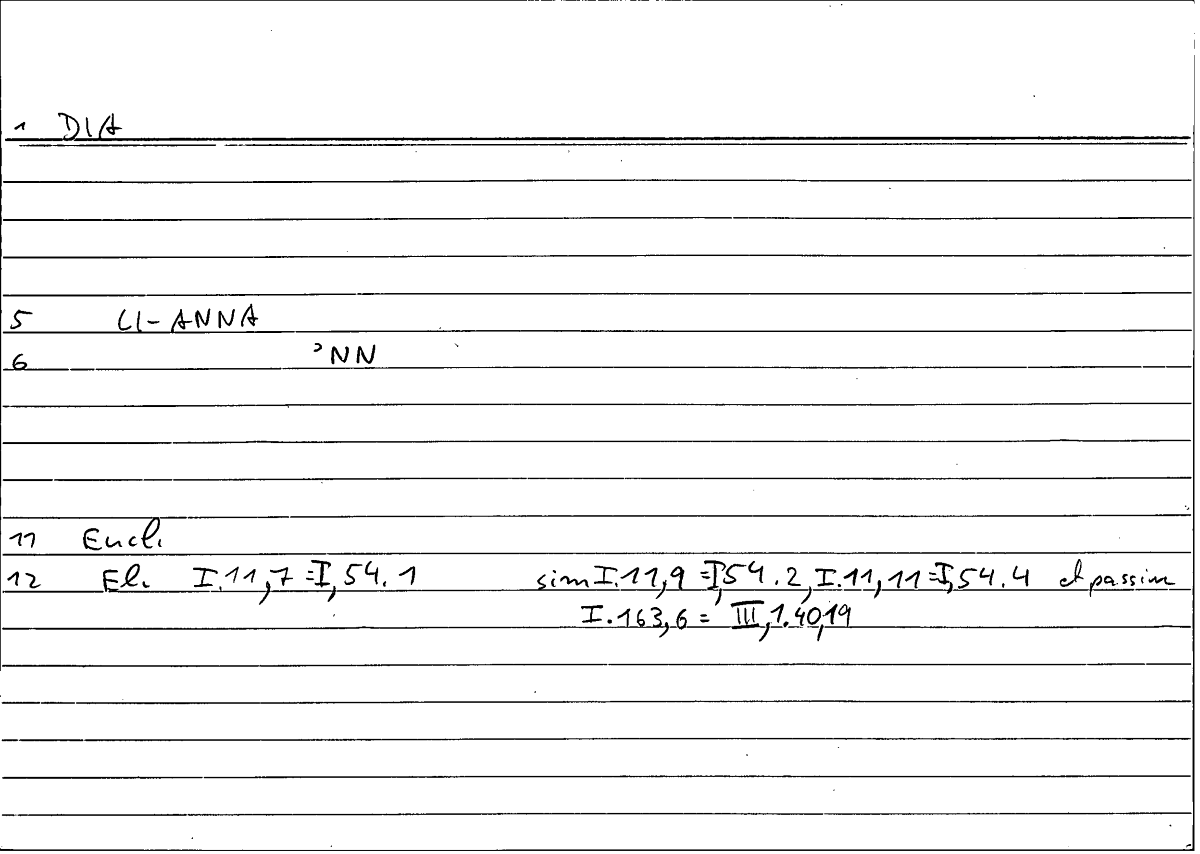 1 DIA
5 LI-ANNA
6 ʾNN
11 Eucl.
12 El. I.11,7 =I,54.1 sim I.11,9 =I,54.2, I.11,11=I,54.4 et passim
I.163,6 = III,1.40,19